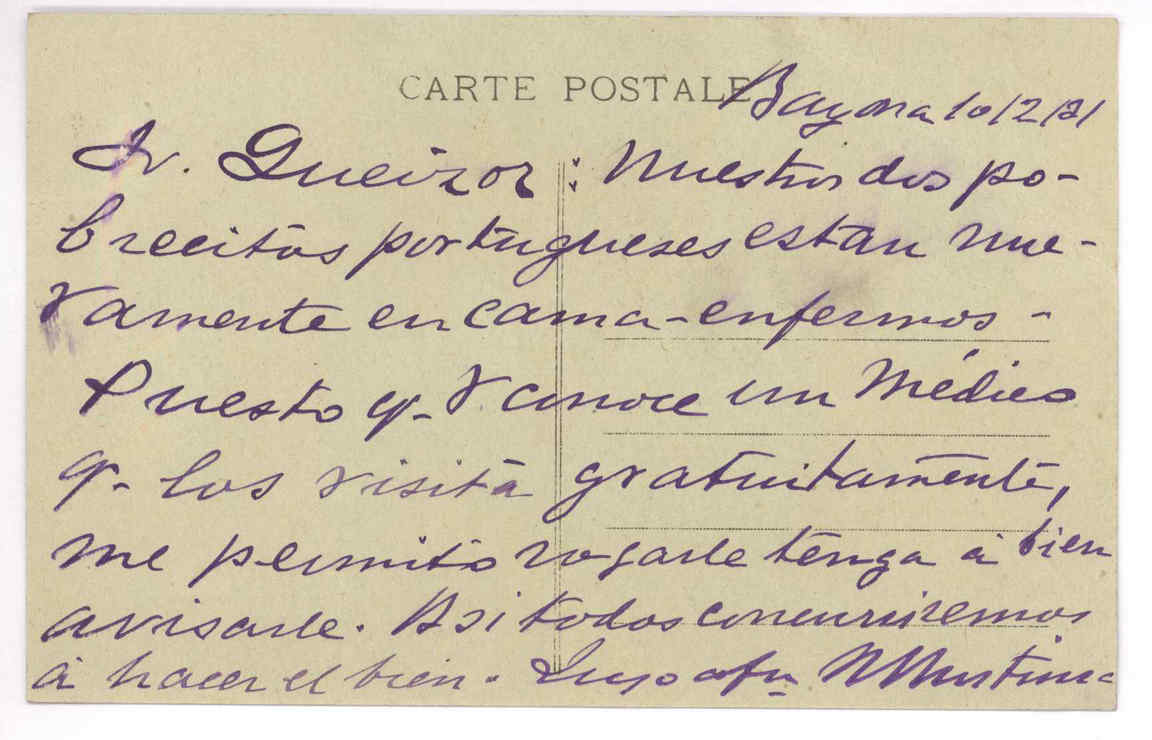 CARTE POSTALE
Bayona 10/2/21
Sr. Queizor: Nuestros dos po-
brecitos portugueses estan nue-
vamente en cama - enfermos -
Puesto q. V. conoce un Médico
q. los visita gratuitamente,
me permito rogarle tenga á bien
avisarle. Asi todos concurriremos
á hacer el bien. Suyo afm